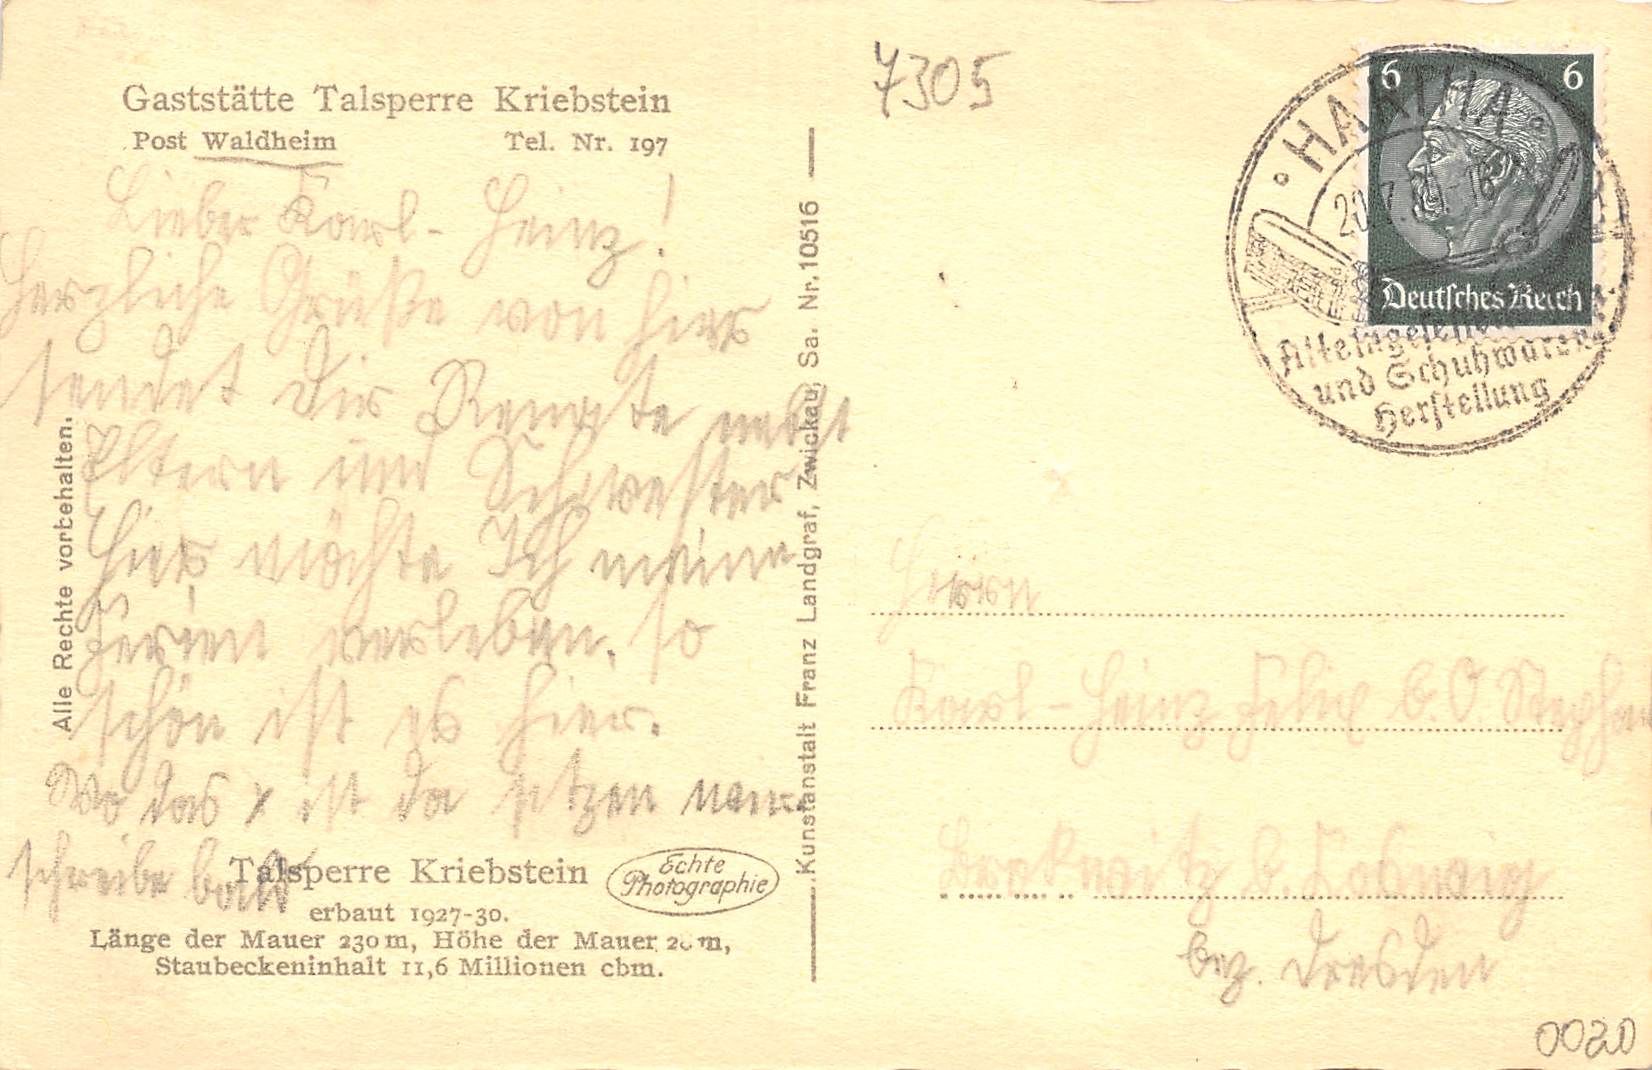 7305
Gaststätte Talsperre Kriebstein
Post Waldheim Tel. Nr. 197
Lieber Karl-Heinz!
Herzliche Grüße von hier
sendet Dir Renate nebst
Eltern und Schwester
Hier möchte Ich meine
Ferien verleben. so
schön ist es hier.
Wo das x ist da sitzen
schreibe bald
Talsperre Kriebstein
erbaut 1927-30.
Länge der Mauer 230 m, Höhe der Mauer m,
Staubeckeninhalt 11,6 Millionen cbm.
Echte
Photographie
Alle Rechte vorbehalten.
Kunstanstalt Franz Landgraf, Zwickau, Sa. Nr. 10516
6 6
Deutsches Reich
HARTHA
20.7.
Alteingesessene
und Schuhwaren
Herstellung
Herrn
Karl-Heinz Felix b. O.
b. Coswig
bez. Dresden
0020